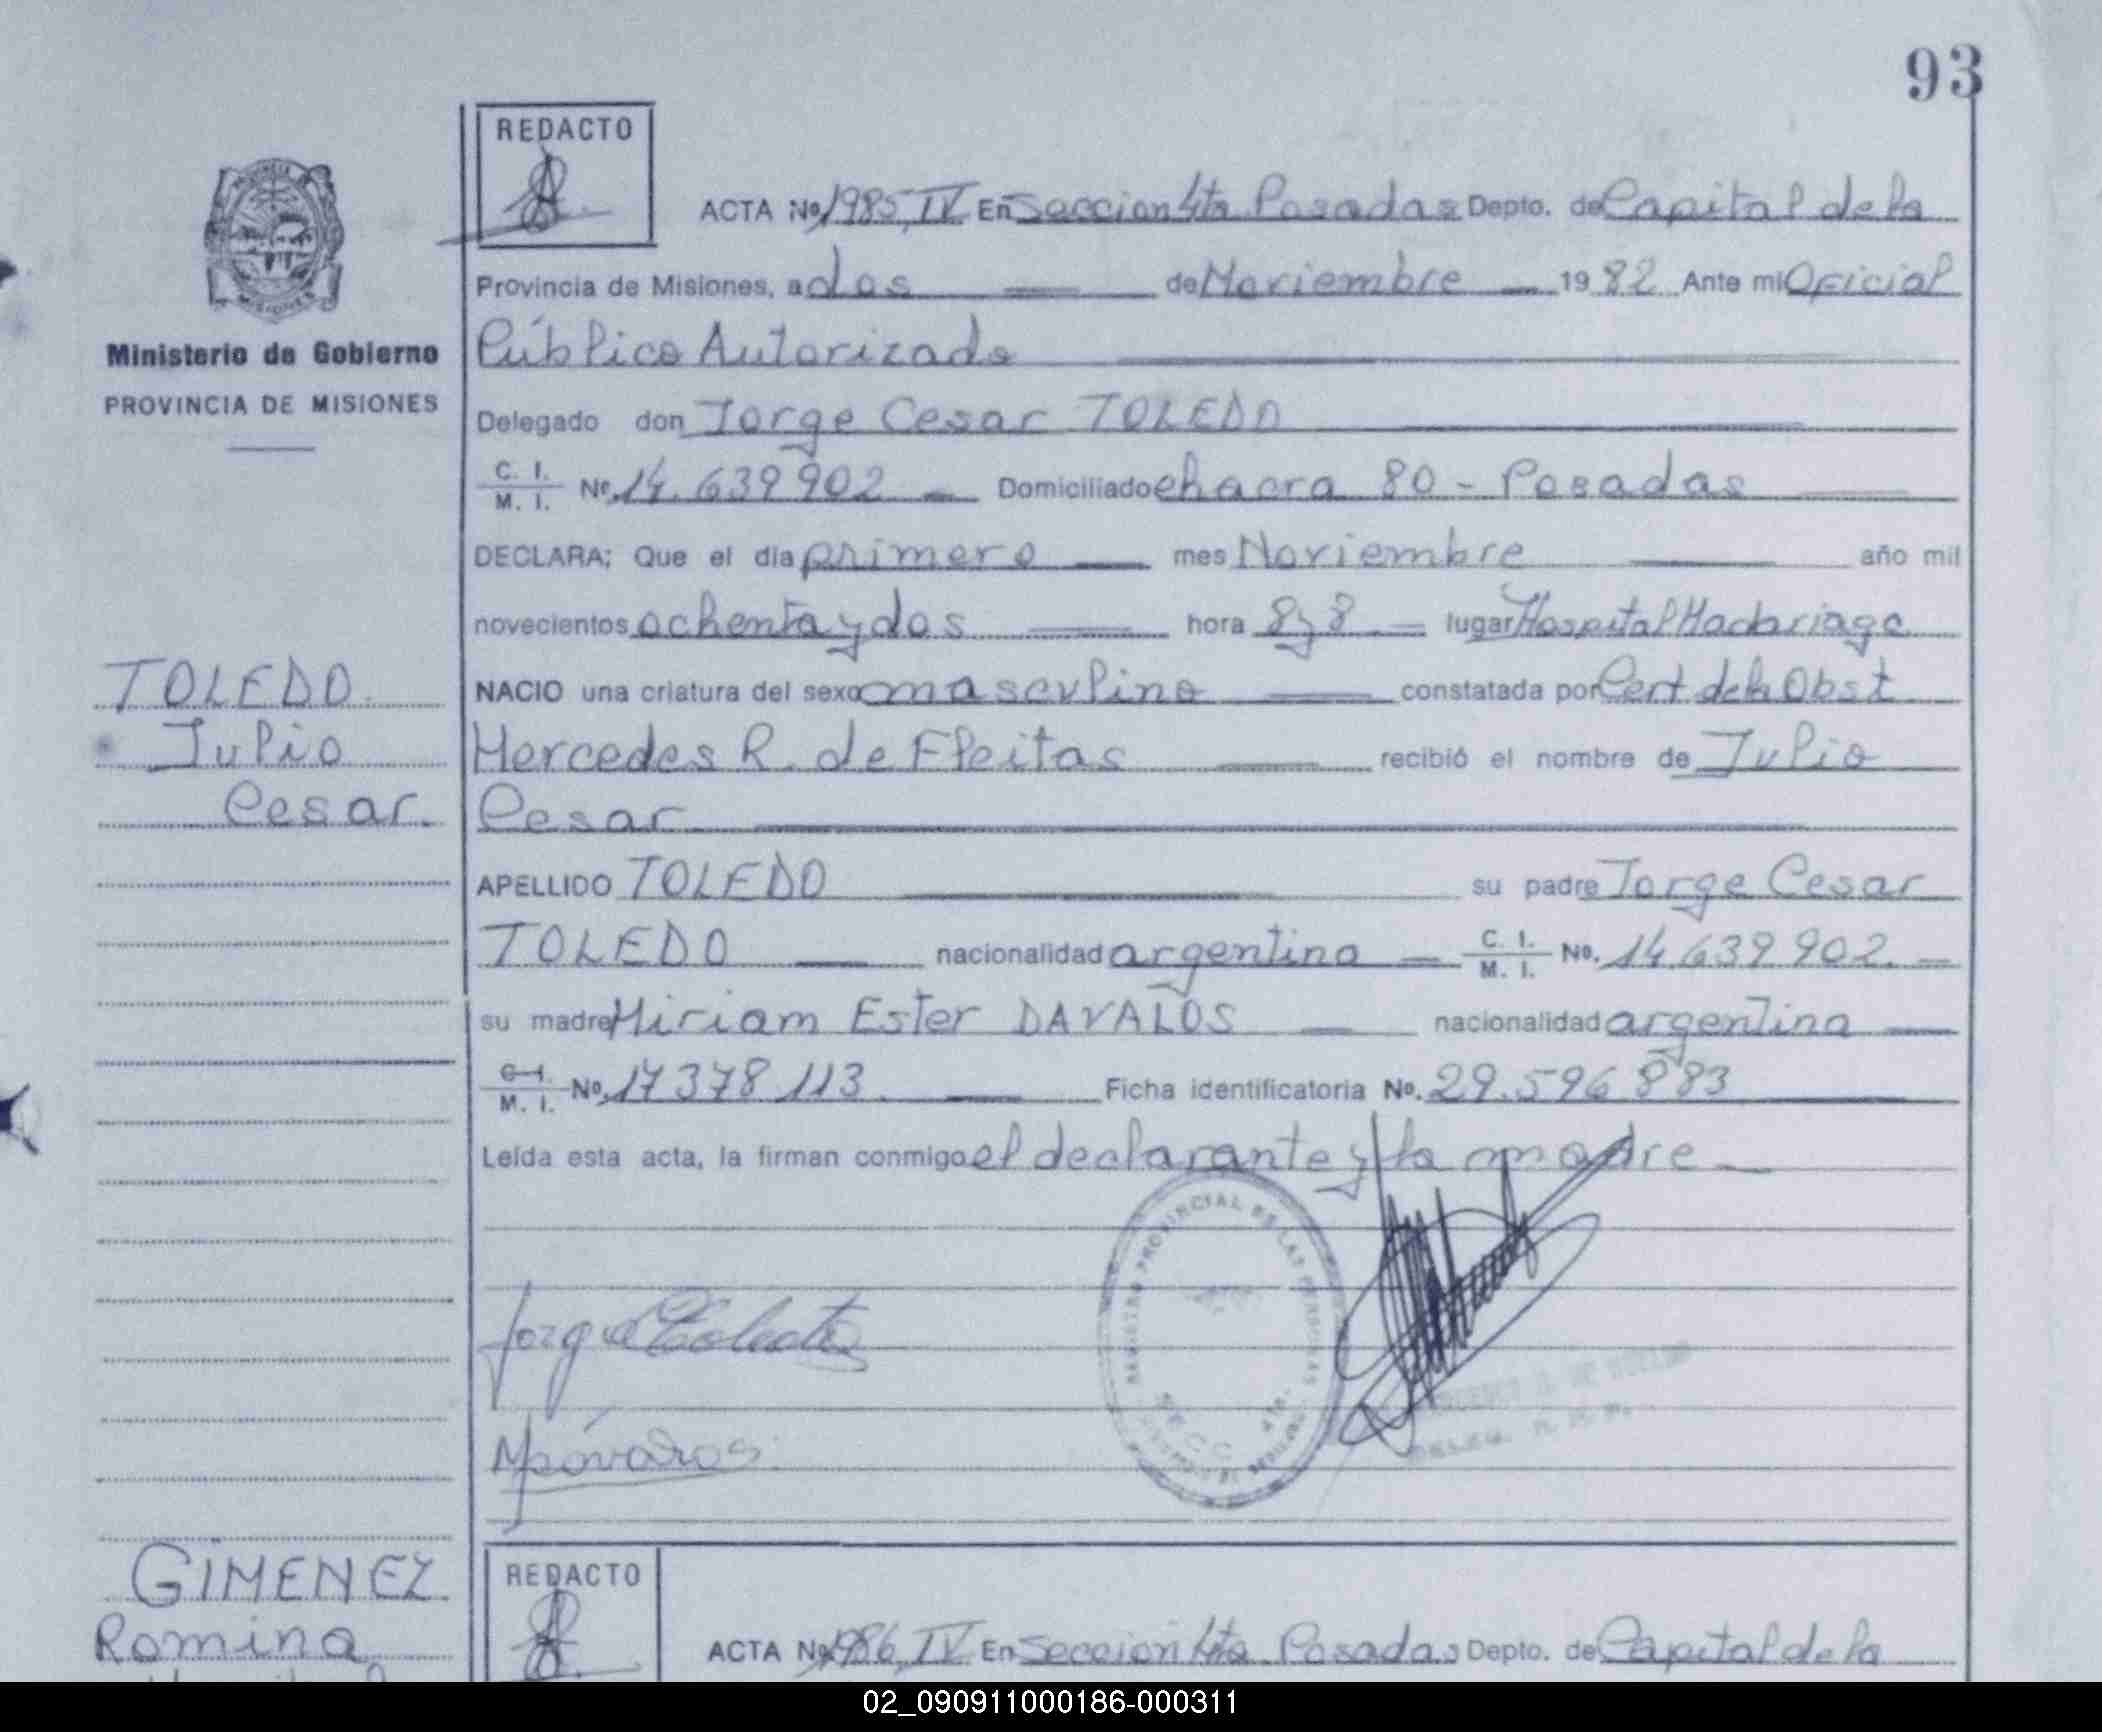 93
REDACTO
ACTA Nº 1985, IV En Seccion 4ta Posadas Depto. de Capital de la
Provincia de Misiones, a dos de Noviembre 1982 Ante mi Oficial
Ministerio de Gobierno
PROVINCIA DE MISIONES
Público Autorizado
Delegado don Jorge Cesar TOLEDO
C. I. M. I. Nº 14.639902 Domiciliado chacra 80 - Posadas
DECLARA; Que el dia primero mes Noviembre año mil
novecientos ochenta y dos hora 8 y 8 lugar Hospital Madariaga
TOLEDO
Julio
Cesar.
NACIO una criatura del sexo masculino constatada por Cert. de la Obst
Mercedes R. de Fleitas recibió el nombre de Julio
Cesar
APELLIDO TOLEDO su padre Jorge Cesar
TOLEDO nacionalidad argentina C. I. M. I. Nº. 14.639902.
su madre Miriam Ester DAVALOS nacionalidad argentina
C. I. M. I. Nº. 17378113 Ficha identificatoria Nº. 29.596883
Leída esta acta, la firman conmigo el declarante y la madre
REGISTRO PROVINCIAL DE LAS PERSONAS
SECC. 4ta.
GIMENEZ
Romina
REDACTO
ACTA Nº 1986, IV En Seccion 4ta Posadas Depto. de Capital de la
02_090911000186-000311